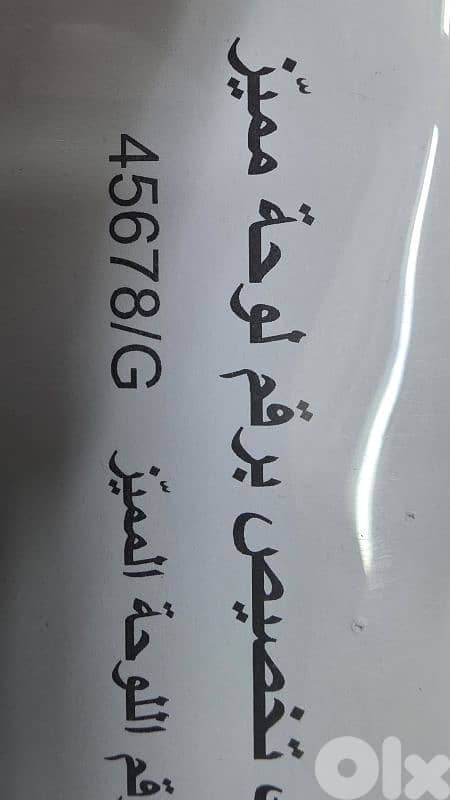 تخصيص برقم لوحة مميّز
اللوحة المميّز 45678/G
Olx